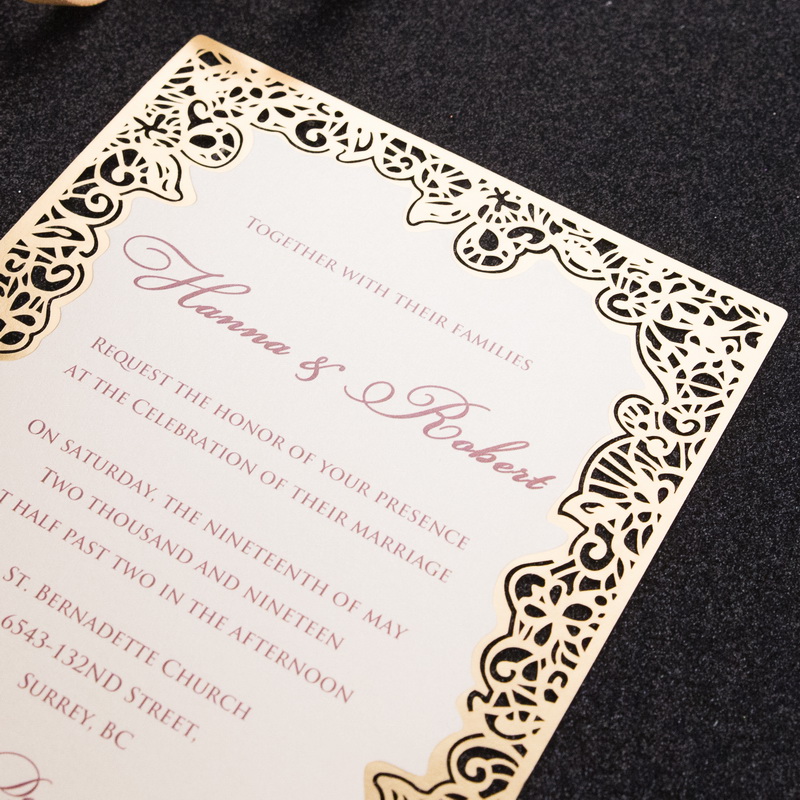 Together with their families
Hanna & Robert
request the honor of your presence
at the Celebration of their marriage
on saturday, the nineteenth of may
Two thousand and nineteen
t half past two in the afternoon
St. Bernadette Church
6543-132nd Street,
Surrey, BC